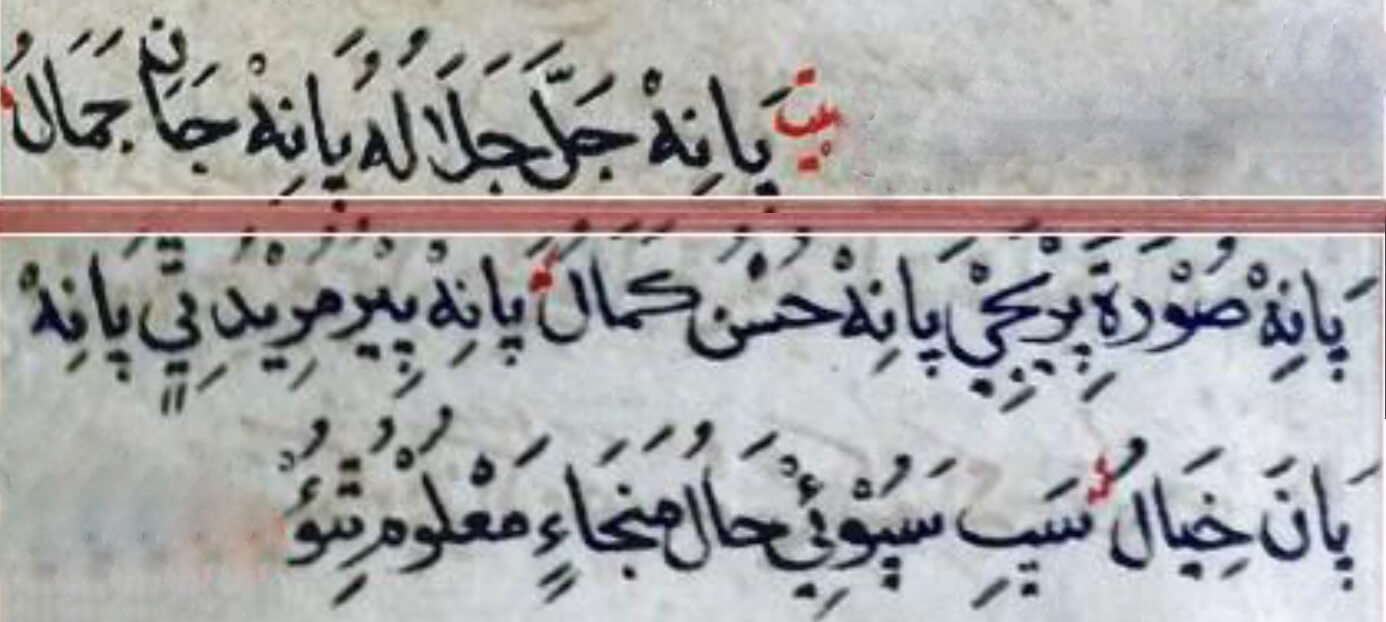 بيت پَانِهْ جَلَّ جَلَالُهُ پَانِهْ جَانِ جَمَالُ
پَانِهْ صُوْرَةِ پِرِيَنْجِيْ پَانِهْ حُسْنُ كَمَالُ پَانِهْ پِيْرُ مُرِيْدُ تِّيٍ پَانِهْ
پَانَ خِيَالُ سَپِ سَپُوْئِيْ حَالُ مَنجَاءٍ مَعْلُوْمُ تِّئُو